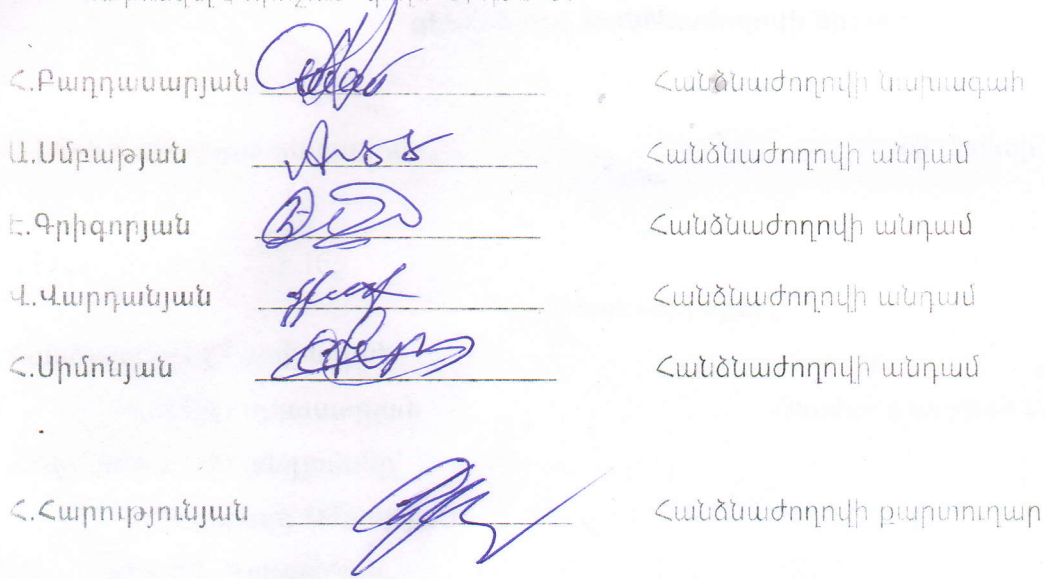 Հ.Բաղդասարյան Հանձնաժողովի նախագահ
Ա.Սմբաթյան Հանձնաժողովի անդամ
Է.Գրիգորյան Հանձնաժողովի անդամ
Վ.Վարդանյան Հանձնաժողովի անդամ
Հ.Սիմոնյան Հանձնաժողովի անդամ
Հ.Հարությունյան Հանձնաժողովի քարտուղար